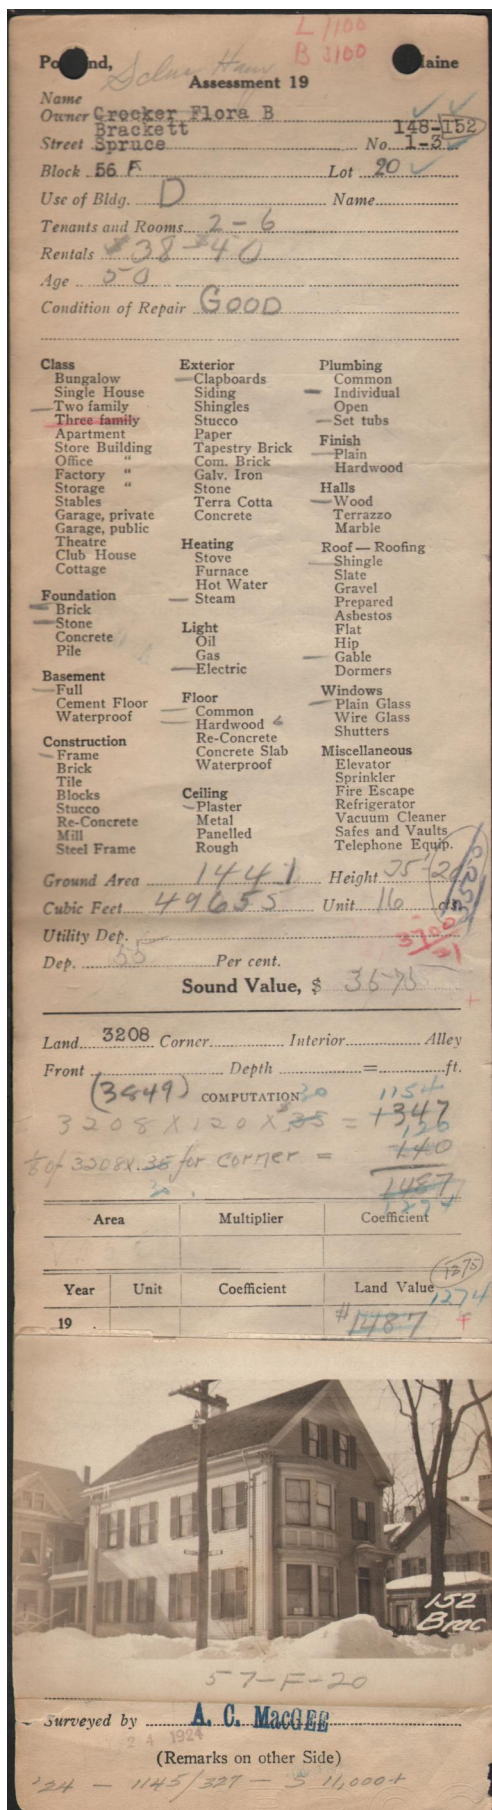 L 1100
B 3100
Portland, Maine
Assessment 19
Name
Owner Crocker Flora B
Brackett 148-152
Street Spruce No. 1-3
Block 56 F Lot 20
Use of Bldg. D Name
Tenants and Rooms 2 - 6
Rentals $38 - $40
Age 50
Condition of Repair GOOD
Class
Bungalow
Single House
Two family
Three family
Apartment
Store Building
Office "
Factory "
Storage "
Stables
Garage, private
Garage, public
Theatre
Club House
Cottage
Foundation
Brick
Stone
Concrete
Pile
Basement
Full
Cement Floor
Waterproof
Construction
Frame
Brick
Tile
Blocks
Stucco
Re-Concrete
Mill
Steel Frame
Exterior
Clapboards
Siding
Shingles
Stucco
Paper
Tapestry Brick
Com. Brick
Galv. Iron
Stone
Terra Cotta
Concrete
Heating
Stove
Furnace
Hot Water
Steam
Light
Oil
Gas
Electric
Floor
Common
Hardwood 6
Re-Concrete
Concrete Slab
Waterproof
Ceiling
Plaster
Metal
Panelled
Rough
Plumbing
Common
Individual
Open
Set tubs
Finish
Plain
Hardwood
Halls
Wood
Terrazzo
Marble
Roof — Roofing
Shingle
Slate
Gravel
Prepared
Asbestos
Flat
Hip
Gable
Dormers
Windows
Plain Glass
Wire Glass
Shutters
Miscellaneous
Elevator
Sprinkler
Fire Escape
Refrigerator
Vacuum Cleaner
Safes and Vaults
Telephone Equip.
Ground Area 1441 Height 35'-20
Cubic Feet 49655 Unit 16 cts.
Utility Dep. 3700
21
Dep. 55 Per cent.
Sound Value, $ 3575
+
Land 3208 Corner Interior Alley
Front Depth = ft.
(3849) COMPUTATION 30 1154
3208 X 120 X $.35 = +347
120
1/8 of 3208 X .35 for corner = 140
30. 1487
1274
Area Multiplier Coefficient
1275
Year Unit Coefficient Land Value
1274
19 $1487 +
152
Brac
57-F-20
Surveyed by A. C. MacGEE
24 1924
(Remarks on other Side)
'24 - 1145/327 - $ 11,000+